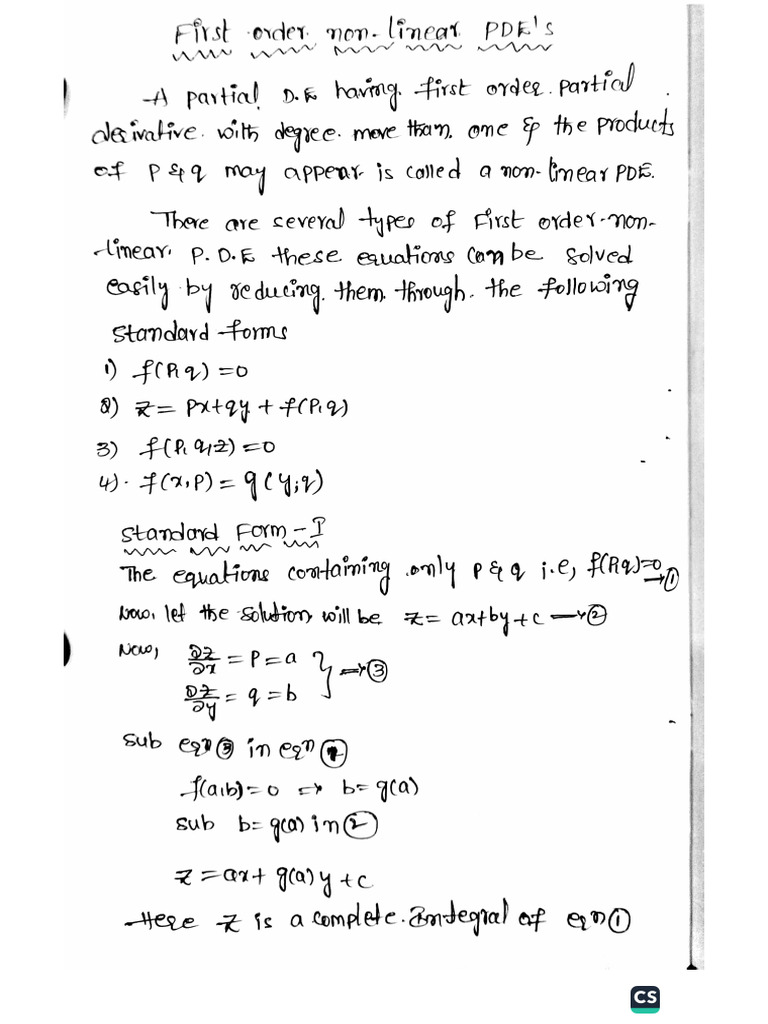 First order non-linear PDE's
A partial D.E having first order partial
derivative with degree more than one & the products
of P & q may appear is called a non-linear PDE.
There are several types of First order-non-
linear P.D.E these equations can be solved
easily by reducing them through the following
standard forms
1) f(P,q) = 0
2) z = px+qy + f(P,q)
3) f(P,q,z) = 0
4) f(x,p) = g(y,q)
Standard Form - I
The equations containing only P & q i.e, f(P,q)=0 → ①
Now, let the solution will be z = ax+by+c → ②
Now, ∂z/∂x = P = a
∂z/∂y = q = b } → ③
Sub eqn ③ in eqn ①
f(a,b) = 0 => b = g(a)
sub b = g(a) in ②
z = ax + g(a) y + c
Here z is a complete Integral of eqn ①
CS